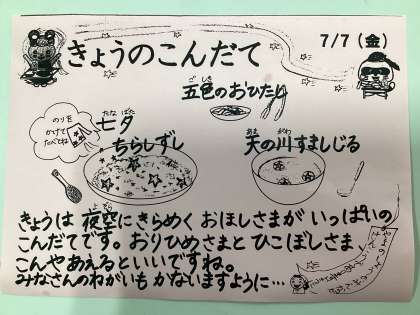 きょうのこんだて
7/7（金）
五色のおひたし
ごしき
のりを
かけて
たべてね
七夕
たなばた
ちらしずし
天の川すましじる
あま がわ
きょうは 夜空にきらめく おほしさまが いっぱいの
よぞら
こんだてです。おりひめさまと ひこぼしさま
こんやあえるといいですね。
みなさんのねがいも かないますように…